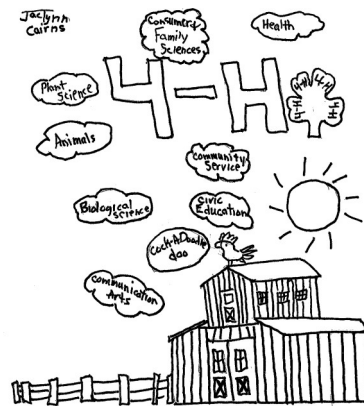 Jaclynn
Cairns
Consumer &
Family
Sciences
Health
4-H
4-H
4-H
4-H
4-H
Plant
Science
Animals
Community
Service
Biological
science
Civic
Education
Cock-A-Doodle
doo
communication
Arts